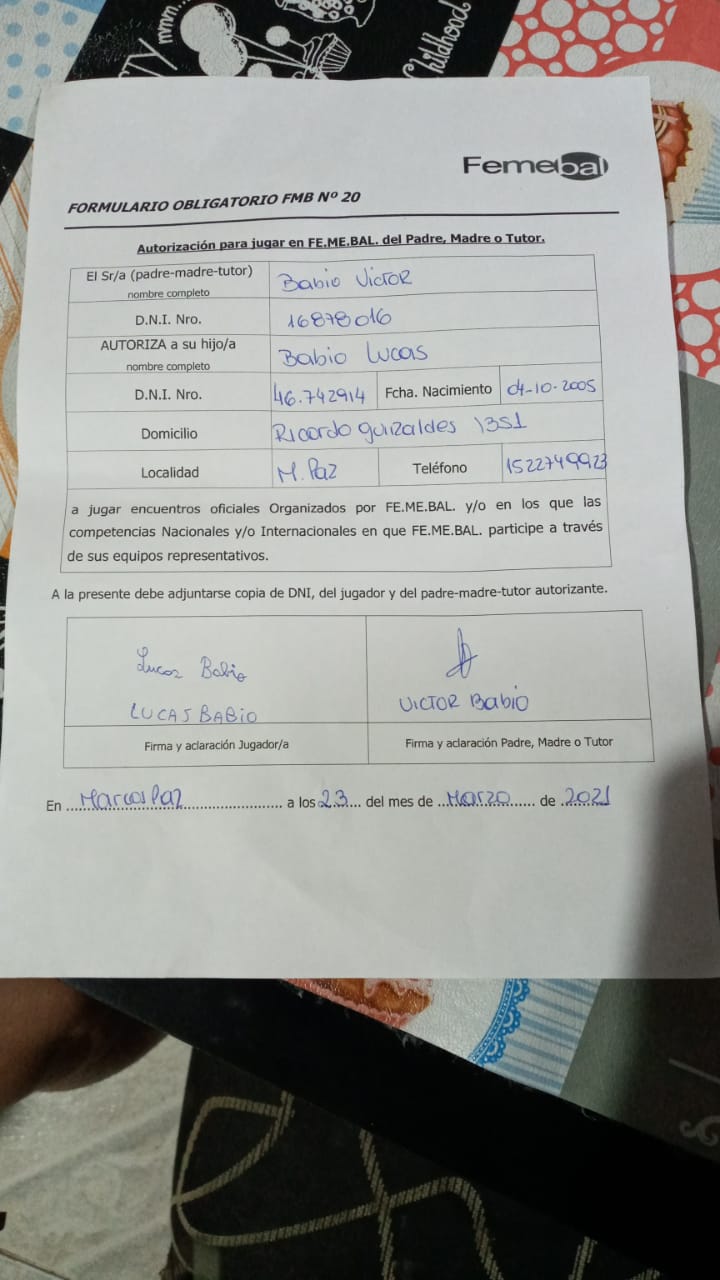 mmm..
Childhood
Femebal
FORMULARIO OBLIGATORIO FMB Nº 20
Autorización para jugar en FE.ME.BAL. del Padre, Madre o Tutor.
El Sr/a (padre-madre-tutor) nombre completo Babio Victor
D.N.I. Nro. 16878016
AUTORIZA a su hijo/a nombre completo Babio Lucas
D.N.I. Nro. 46.742914 Fcha. Nacimiento 04-10-2005
Domicilio Ricardo guizaldes 1351
Localidad M. Paz Teléfono 1522749923
a jugar encuentros oficiales Organizados por FE.ME.BAL. y/o en los que las
competencias Nacionales y/o Internacionales en que FE.ME.BAL. participe a través
de sus equipos representativos.
A la presente debe adjuntarse copia de DNI, del jugador y del padre-madre-tutor autorizante.
Lucas Babio
LUCAS BABIO
VICTOR BabiO
Firma y aclaración Jugador/a
Firma y aclaración Padre, Madre o Tutor
En Marcos Paz a los 23 del mes de Marzo de 2021